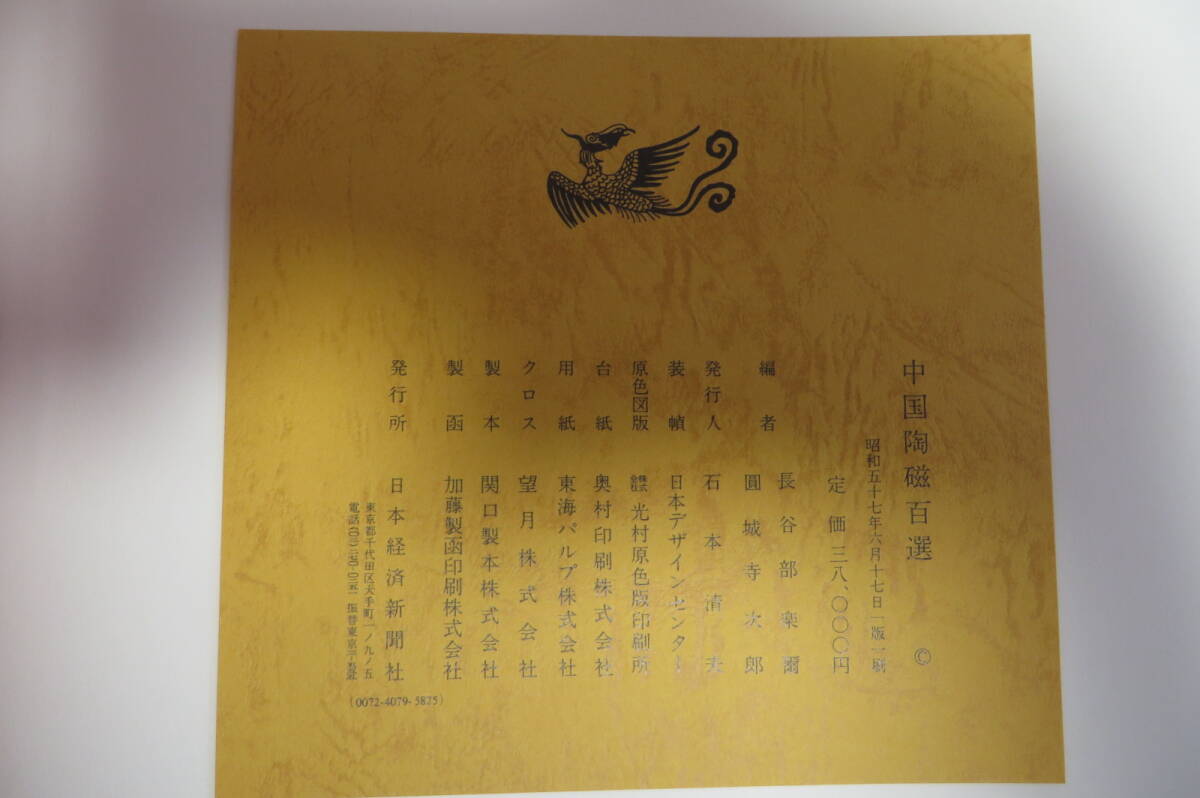 中国陶磁百選 ©
昭和五十七年六月十七日 一版一刷
定価 三八、〇〇〇円
編者 長谷部楽爾
圓城寺次郎
発行人 石本清夫
装幀 日本デザインセンター
原色図版 株式会社 光村原色版印刷所
台紙 奥村印刷株式会社
用紙 東海パルプ株式会社
クロス 望月株式会社
製本 関口製本株式会社
製函 加藤製函印刷株式会社
発行所 日本経済新聞社
東京都千代田区大手町一ノ九ノ五
電話(〇三)二七〇‐〇二五一 振替東京
(0072-4079-5825)